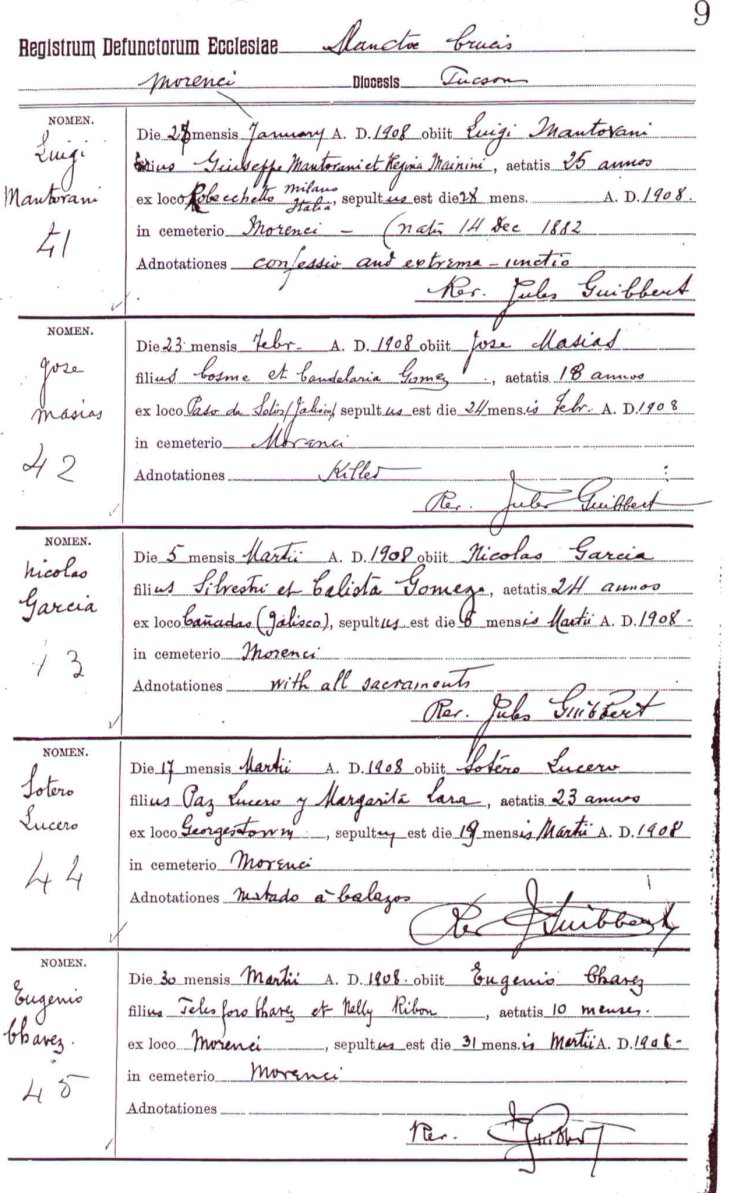 9
Registrum Defunctorum Ecclesiae Sanctae Crucis
Morenci Diocesis Tucson
NOMEN.
Luigi
Mantovani
41
Die 27 mensis January A. D. 1908 obiit Luigi Mantovani
filius Giuseppe Mantovani et Regina Mainini, aetatis 25 annos
ex loco Robecchetto Milano Italia, sepultus est die 28 mens. A. D. 1908.
in cemeterio Morenci - (natus 14 Dec 1882
Adnotationes confessio and extrema-unctio
Rev. Jules Guibbert
NOMEN.
Jose
Masias
42
Die 23 mensis Febr. A. D. 1908 obiit Jose Masias
filius Cosme et Candelaria Gomez, aetatis 18 annos
ex loco Paso de Sotos (Jalisco) sepultus est die 24 mensis Febr. A. D. 1908
in cemeterio Morenci
Adnotationes Killed
Rev. Jules Guibbert
NOMEN.
Nicolas
Garcia
13
Die 5 mensis Martii A. D. 1908 obiit Nicolas Garcia
filius Silvestri et Calista Gomez, aetatis 24 annos
ex loco Cañadas (Jalisco), sepultus est die 6 mensis Martii A. D. 1908.
in cemeterio Morenci
Adnotationes with all sacraments
Rev. Jules Guibbert
NOMEN.
Sotero
Lucero
44
Die 17 mensis Martii A. D. 1908 obiit Sotéro Lucero
filius Paz Lucero y Margarita Lara, aetatis 23 annos
ex loco Georgestown, sepultus est die 19 mensis Martii A. D. 1908
in cemeterio Morenci
Adnotationes matado a balazos
Rev J Guibbert
NOMEN.
Eugenio
Chavez.
45
Die 30 mensis Martii A. D. 1908. obiit Eugenio Chavez
filius Telesforo Chavez et Nelly Ribon, aetatis 10 menses.
ex loco Morenci, sepultus est die 31 mensis Martii A. D.
in cemeterio Morenci
Adnotationes
Rev. J Guibbert